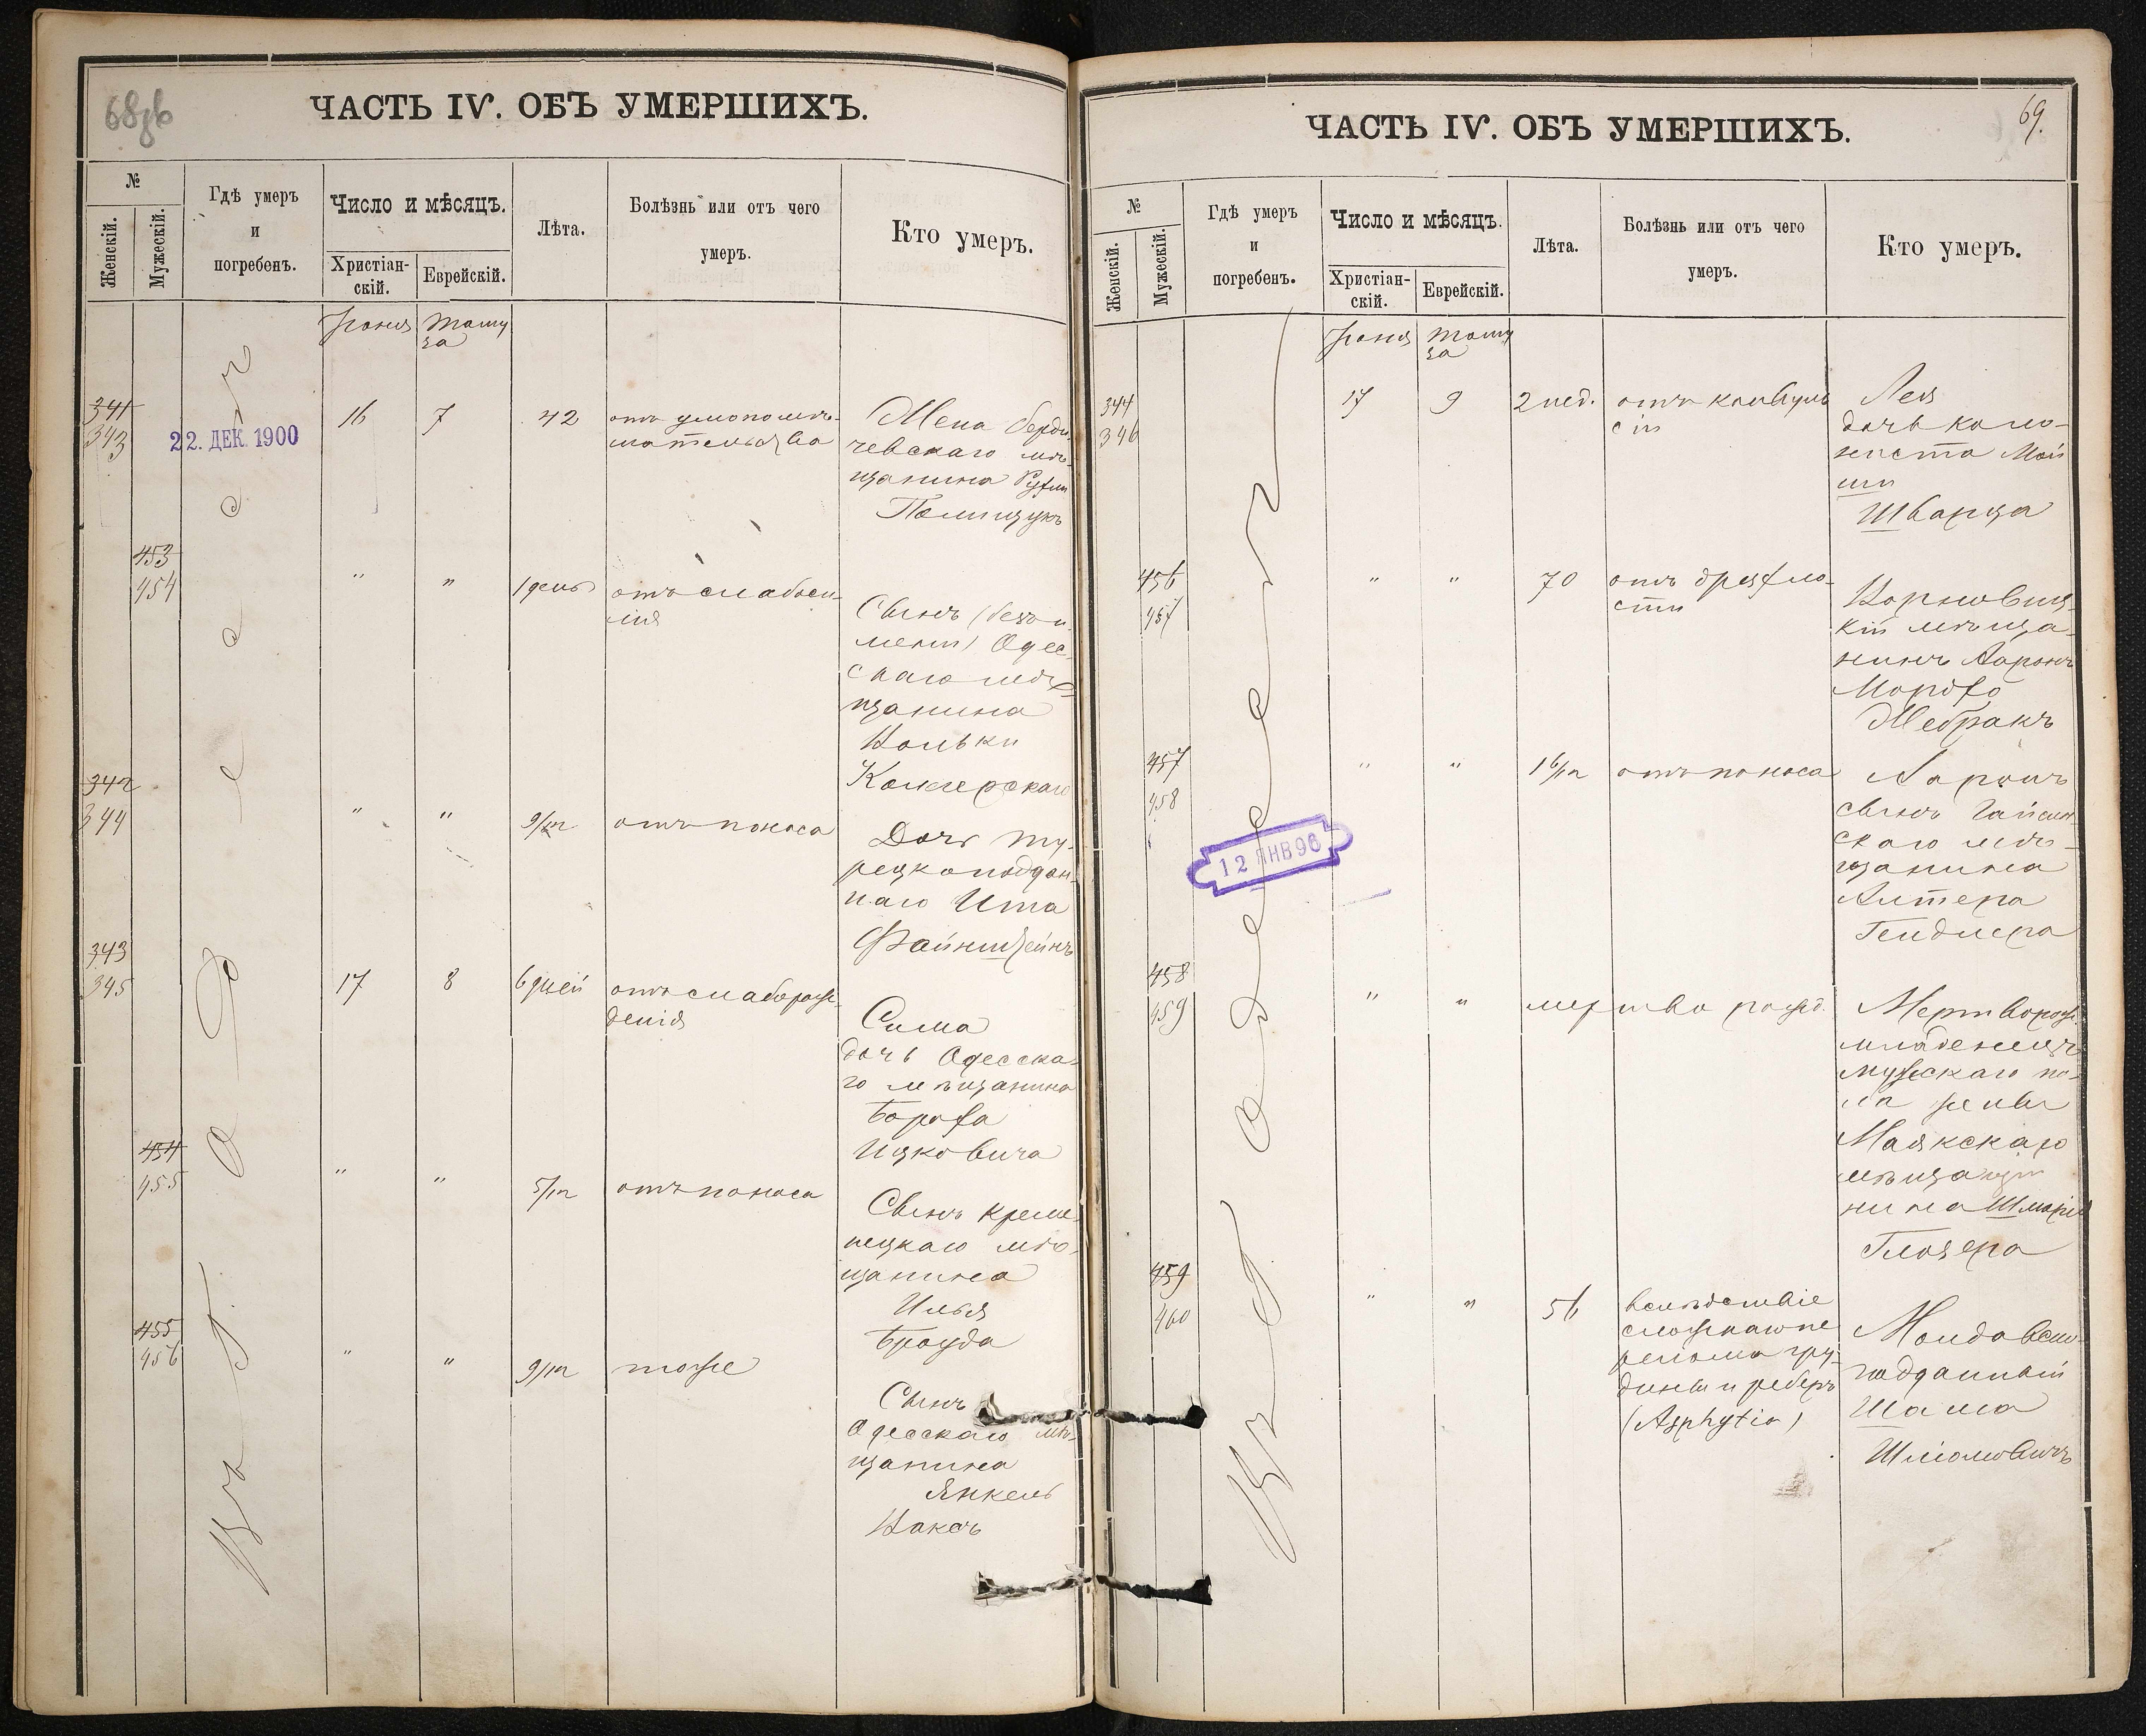 68 зв
ЧАСТЬ IV. ОБЪ УМЕРШИХЪ.
№
Женскій.
Мужескій.
Гдѣ умеръ
и
погребенъ.
Число и мѣсяцъ.
Христіан-
скій.
Еврейскій.
Лѣта.
Болѣзнь или отъ чего
умеръ.
Кто умеръ.
Іюня
Таму
за
Въ г. Одессѣ
22. ДЕК. 1900
341
343
16
7
42
отъ умопомѣ-
шательства
Жена берди
чевскаго мѣ-
щанина
Полищукъ
453
454
"
"
1 день
отъ слабоси-
лія
Сынъ (безъи
мени) Одес
скаго мѣ-
щанина
342
344
"
"
9/м
отъ поноса
Дочь ту-
рецкоподдан
наго Ита
Файнштейнъ
343
345
17
8
6 дней
отъ слаборож
денія
Сима
дочь Одесска
го мѣщанина
Боруха
Ицковича
454
455
"
"
5/м
отъ поноса
Сынъ креме
нецкаго мѣ-
щанина
Илья
Брауда
455
456
"
"
9/м
тоже
Сынъ
Одесскаго мѣ-
щанина
Янкель
69.
ЧАСТЬ IV. ОБЪ УМЕРШИХЪ.
№
Женскій.
Мужескій.
Гдѣ умеръ
и
погребенъ.
Число и мѣсяцъ.
Христіан-
скій.
Еврейскій.
Лѣта.
Болѣзнь или отъ чего
умеръ.
Кто умеръ.
Іюня
Таму
за
Въ г. Одессѣ
12 ЯНВ 96
344
346
17
9
2 нед.
отъ конвуль
сіи
Лея
дочь коло-
ниста Мой
ши
Шварца
456
457
"
"
70
отъ дряхло-
сти
кій мѣща-
нинъ Аронъ
Мордко
Жебракъ
457
458
"
"
отъ поноса
Аронъ
сынъ Гайсин
скаго мѣ-
щанина
Алтера
Гендлера
458
459
"
"
мертво рожд.
Мертворож.
младенецъ
мужескаго по-
ла жены
Маякскаго
мѣща
нина Шмаріа
Глозера
459
460
"
"
56
вслѣдствіе
сложнаго пе
релома гру-
дины и реберъ
(Asphytia)
Молдавско
подданный
Шама
Шліомовичъ